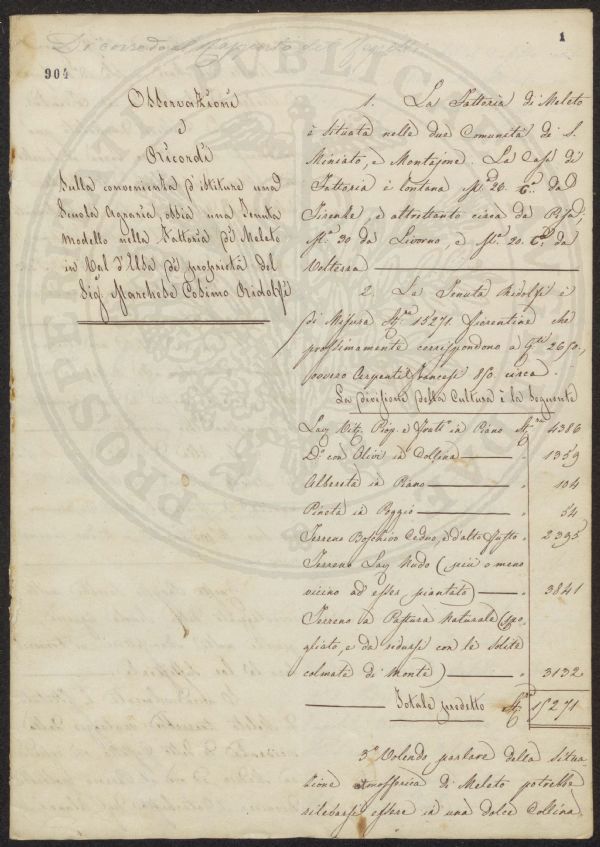 1
904
Osservazioni
e
Ricordi
Sulla convenienza d'istituire una
Scuola Agraria, ossia una Tenuta
Modello nella Fattoria di Meleto
in Val d'Elsa di proprietà del
Sig.r Marchese Cosimo Ridolfi
1. La Fattoria di Meleto
è situata nelle due Comunità di S.
Miniato, e Montajone. La Casa di
Fattoria è lontana M.a 26. C.a da
Firenze, e altrettanto circa da Pisa;
M.a 30 da Livorno, e M.a 20. C.a da
Volterra
2. La Tenuta Ridolfi è
di Misura St.ra 15271. fiorentine che
prossimamente corrispondono a 2650.,
ovvero francesi 850. circa.
La divisione della Cultura è la Seguente
Lav. Vit. Piop. e frutt. in Piano St.ra 4386
D.o con Olivi in Collina " 1359
Albereta in Piano " 104
Pineta in Poggio " 54
Terreno Boschivo Ceduo, e d'alto fusto " 2395
Terreno Lav. Nudo (più o meno
vicino ad esser piantato) " 3841
Terreno a Pastura Naturale (spo
gliato, e da ridursi con le solite
colmate di Monte) " 3132
Totale predetto St.ra 15271
3.o Volendo parlare della situa
zione atmosferica di Meleto potrebbe
rilevarsi essere in una dolce Collina